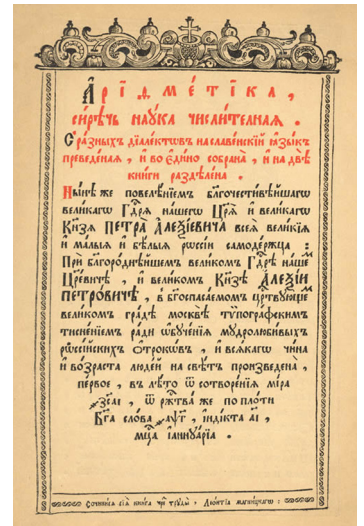 А҆рїѳме́тїка,
си́рѣчь наꙋ́ка числи́телная.
С ра́зныхъ дїале́ктѡвъ на слаѵе́нскїй ꙗ҆зы́къ
преведе́ная, и҆ во є҆ди́но собрана̀, и҆ на двѣ̀
кни́ги раздѣле́на.
Ны́нѣ же повелѣ́нїемъ бл҃гочести́вѣйшагѡ
вели́кагѡ Гдⷭ҇рѧ на́шегѡ Цр҃ѧ̀ и҆ вели́кагѡ
Кн҃зѧ ПЕТРА̀ А҆ЛЕѮІ́ЕВИЧА всеѧ̀ вели́кїѧ
и҆ ма́лыѧ и҆ бѣ́лыѧ рѡссі́и самоде́ржца :
При бл҃горо́днѣйшемъ вели́комъ Гдⷭ҇рѣ на́шемъ
Цр҃е́вичѣ, и҆ вели́комъ Кн҃зѣ А҆ЛЕѮІ́И
ПЕТРО́ВИЧѢ, в бг҃оспаса́емомъ црⷭ҇твꙋ́ющемъ
вели́комъ гра́дѣ москвѣ̀ тѷпогра́фскимъ
тисне́нїемъ ра́ди ѡ҆бꙋче́нїѧ мꙋдролюби́выхъ
рѡссі́йскихъ ѻ҆́трокѡвъ, и҆ всѧ́кагѡ чи́на
и҆ во́зраста люде́й на свѣ́тъ произведена̀,
пе́рвое, въ лѣ́то ѿ сотворе́нїѧ мі́ра
҂зс҃аі, ѿ ржⷭ҇тва̀ же по пло́ти
Бг҃а сло́ва ҂аѱ҃г, і҆ндїкта аі,
мцⷭ҇а і҆аннꙋа́рїа.
Сочини́сѧ сїѧ̀ кни́га чрез трꙋды̀ Леѻ́нтїа магни́цкагѡ :